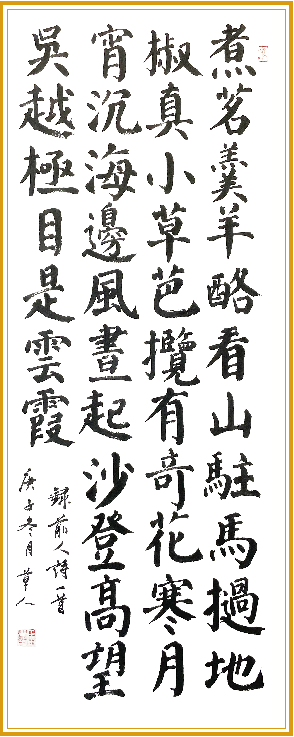 煮茗羹羊酪看山駐馬撾地
椒真小草芭攬有奇花寒月
宵沉海邊風晝起沙登高望
吳越極目是雲霞
録前人詩一首
庚子冬月草人